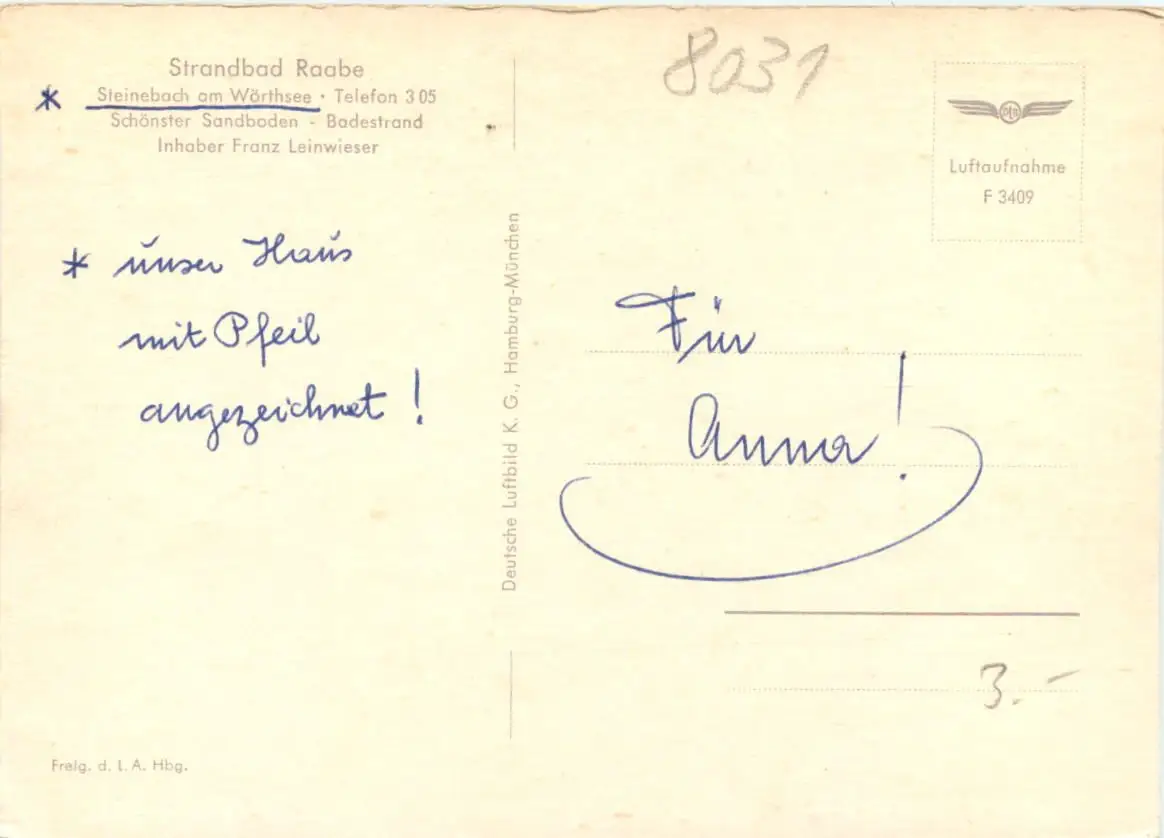 Strandbad Raabe
* Steinebach am Wörthsee · Telefon 3 05
Schönster Sandboden - Badestrand
Inhaber Franz Leinwieser
* unser Haus
mit Pfeil
angezeichnet !
Freig. d. L. A. Hbg.
Deutsche Luftbild K. G., Hamburg-München
8031
Luftaufnahme
F 3409
Für
Anna!
3.-